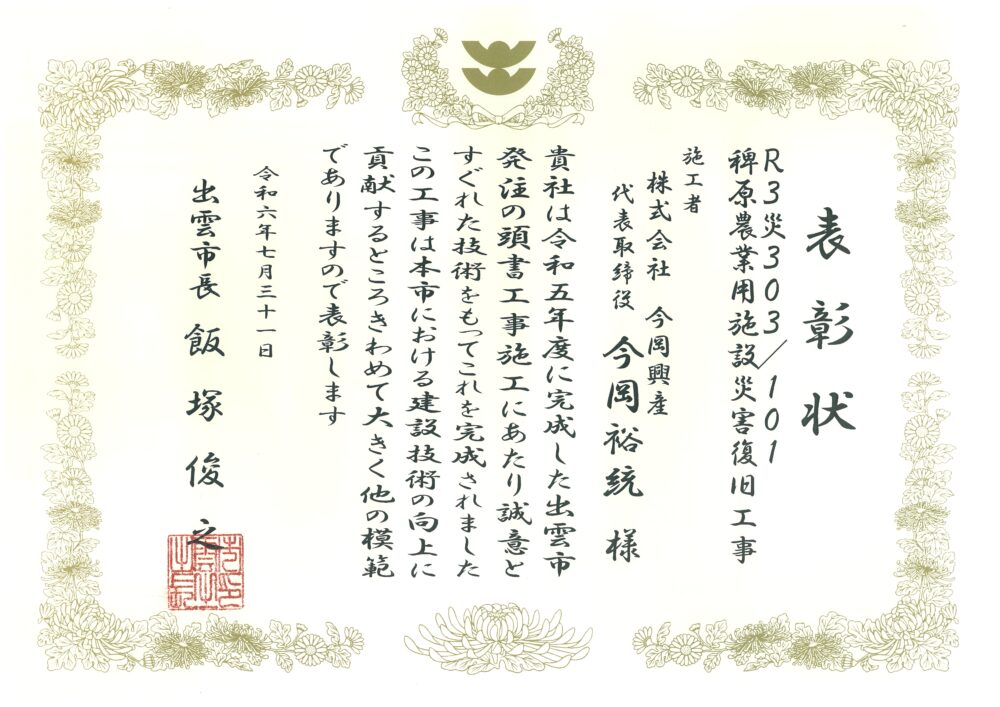 表彰状
R3災303/101
稗原農業用施設災害復旧工事
施工者
株式会社 今岡興産
代表取締役 今岡裕統 様
貴社は令和五年度に完成した出雲市
発注の頭書工事施工にあたり誠意と
すぐれた技術をもってこれを完成されました
この工事は本市における建設技術の向上に
貢献するところきわめて大きく他の模範
でありますので表彰します
令和六年七月三十一日
出雲市長 飯塚俊之